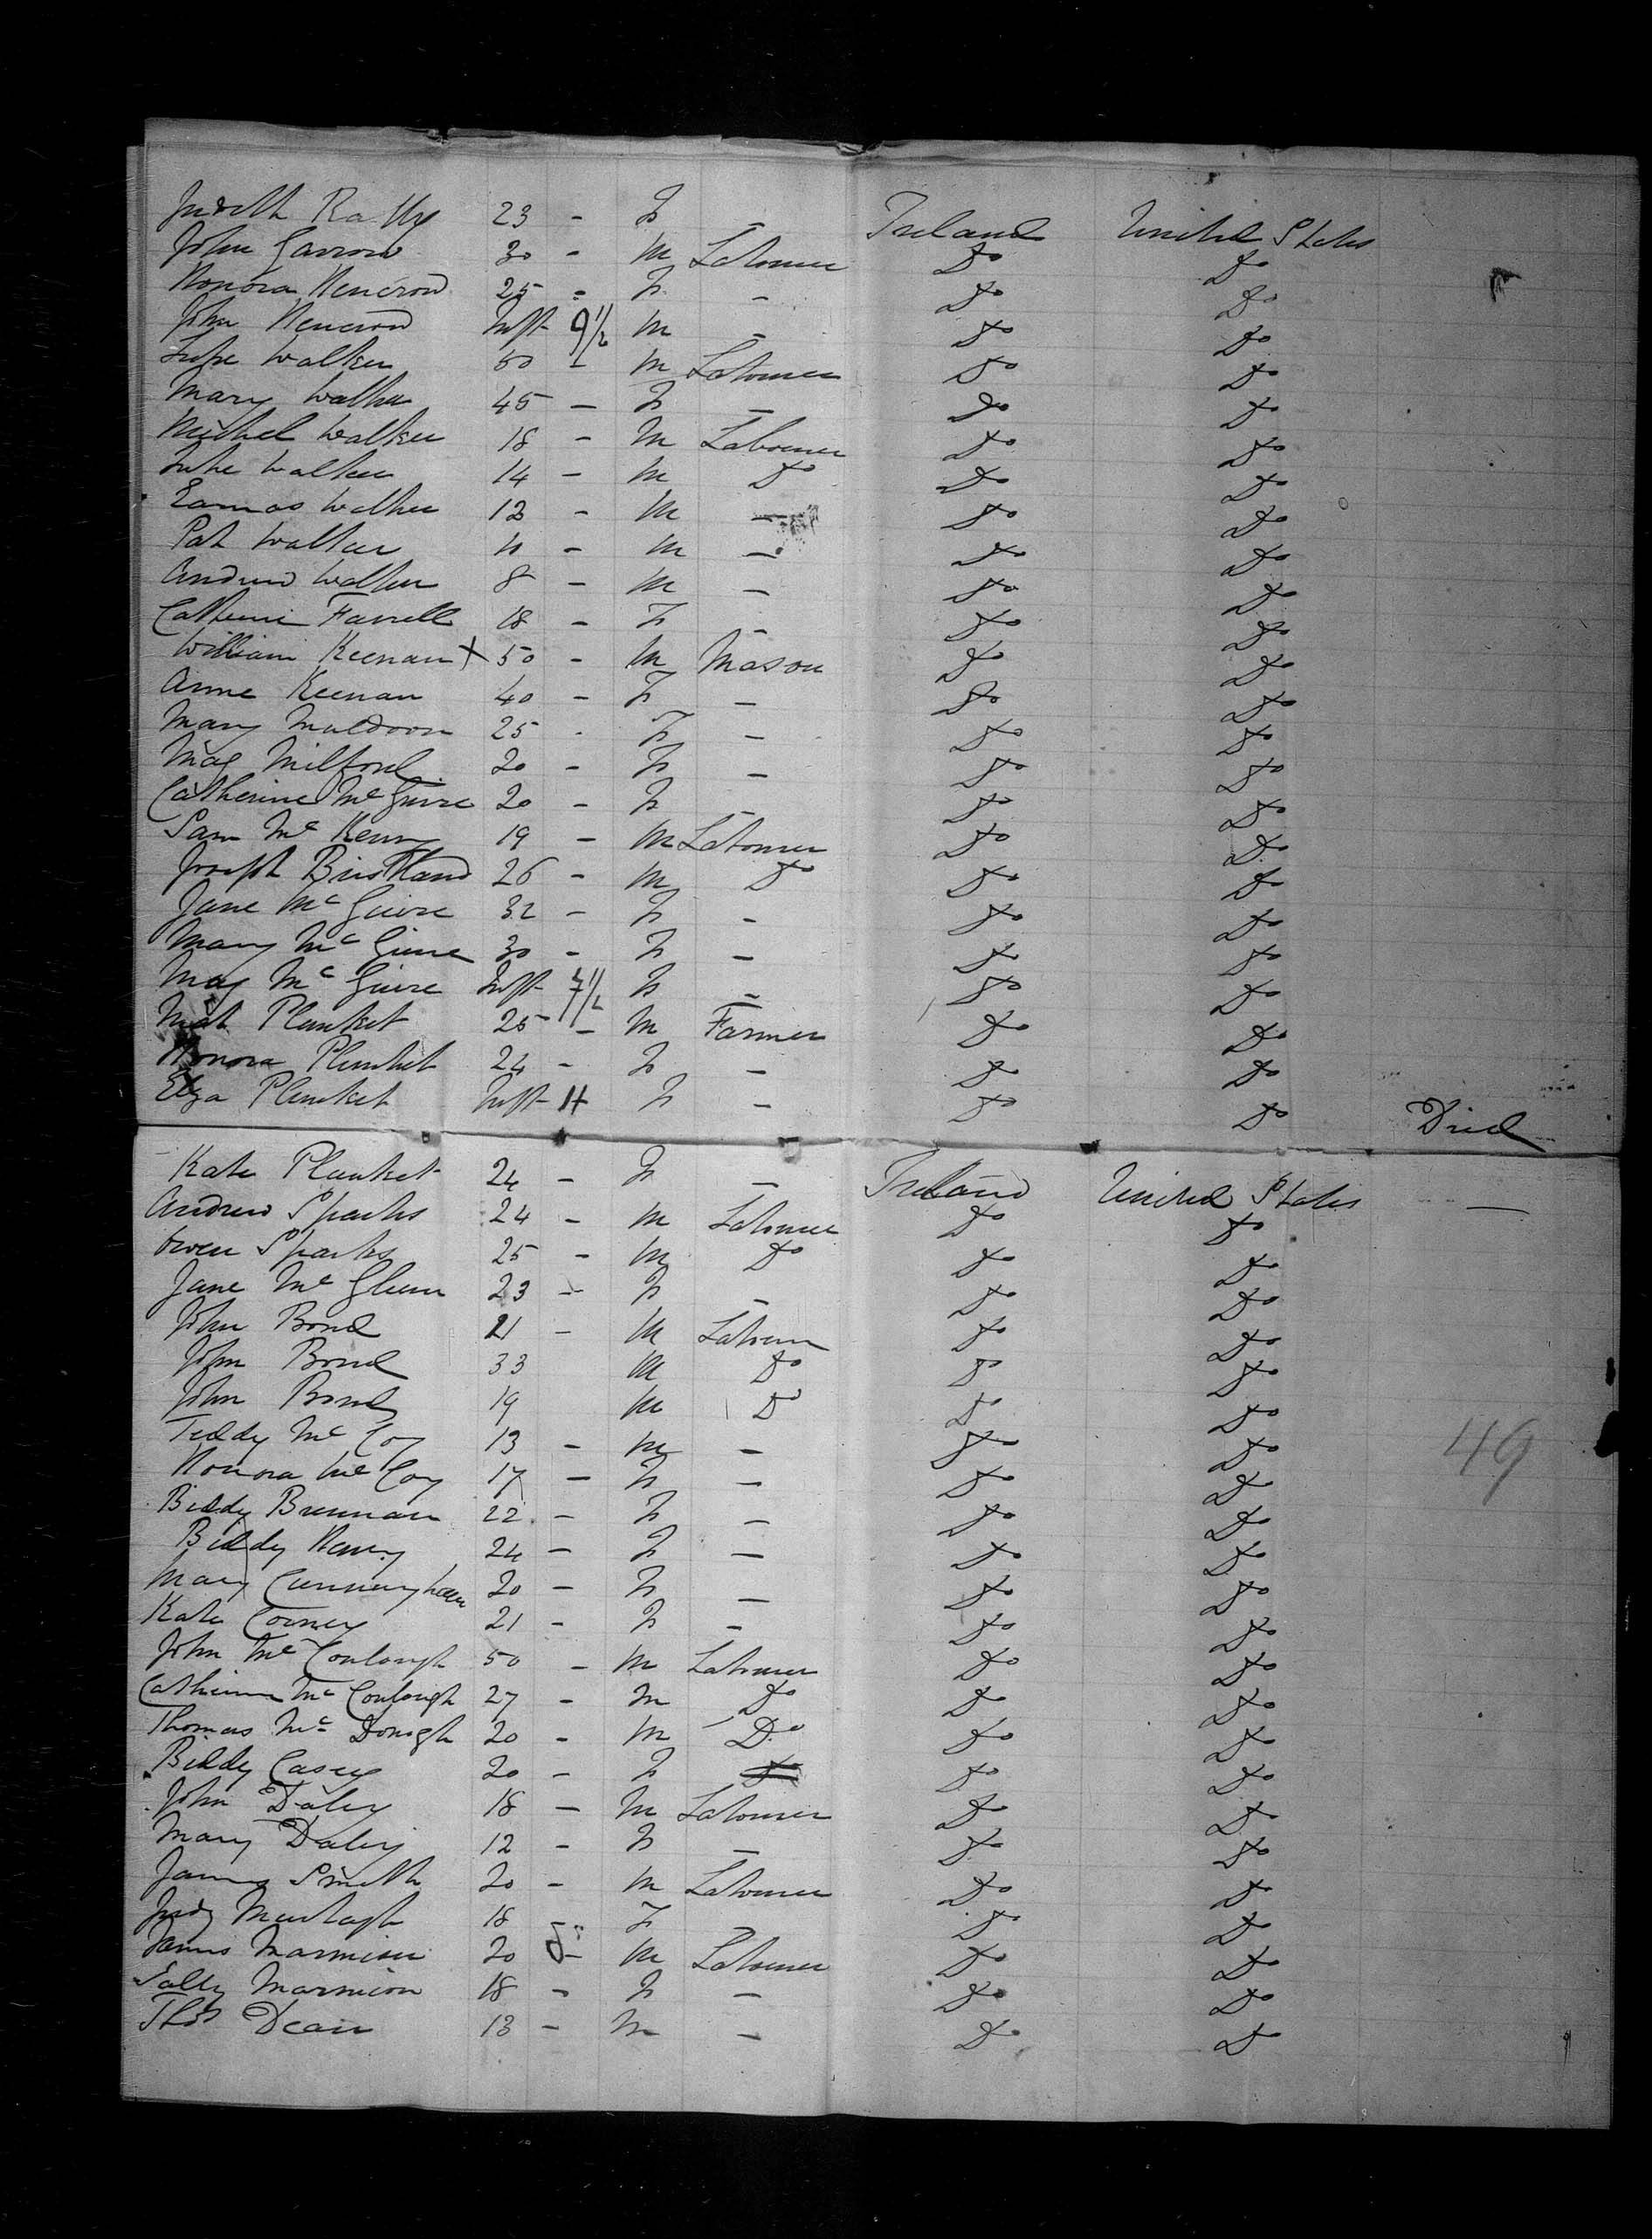 Judith Rally 23 - F - Ireland United States
John Garrow 30 - M Labourer Do Do
Honora Hencrow 25 - F - Do Do
John Hencrow Inft 9 1/2 M - Do Do
Luke Walker 50 - M Labourer Do Do
Mary Walker 45 - F - Do Do
Michel Walker 18 - M Labourer Do Do
Luke Walker 14 - M Do Do Do
Walker 12 - M - Do Do
Pat Walker - M - Do Do
Andrew Walker 8 - M - Do Do
Catherine Farrell 18 - F - Do Do
William Keenan X 50 - M Mason Do Do
Anne Keenan 40 - F - Do Do
Mary Muldoon 25 - F - Do Do
Mag Milford 20 - F - Do Do
Catherine McGuire 20 - F - Do Do
Sam McKenny 19 - M Labourer Do Do
Joseph 26 - M Do Do Do
Jane McGuire 32 - F - Do Do
Mary McGuire 30 - F - Do Do
Mag McGuire Inft 7 1/2 F - Do Do
Mat Plunket 25 - M Farmer Do Do
Honora Plunket 24 - F - Do Do
Elza Plunket Inft 11 F - Do Do Died
Kate Plunket 24 - F - Ireland United States -
Andrew Sparks 24 - M Labourer Do Do
Owen Sparks 25 - M Do Do Do
Jane McGlenn 23 - F - Do Do
John Bond 21 - M Labourer Do Do
John Bond 33 M Do Do Do
John Bond 19 M Do Do Do
Teddy McCoy 13 - M - Do Do
49
Honora McCoy 17 - F - Do Do
Biddy Brennan 22 - F - Do Do
Biddy Henry 24 - F - Do Do
Mary Cunningham 20 - F - Do Do
Kate Corney 21 - F - Do Do
John McConlough 50 - M Labourer Do Do
Catherine McConlough 27 - M Do Do Do
Thomas McDonogh 20 - M Do Do Do
Biddy Casey 20 - F Do Do Do
John Daley 18 - M Labourer Do Do
Mary Daley 12 - F - Do Do
James Smith 20 - M Labourer Do Do
Judy Murtagh 18 F - Do Do
James Marmion 20 - M Labourer Do Do
Sally Marmion 18 - F - Do Do
Thos Dean 13 - M - Do Do